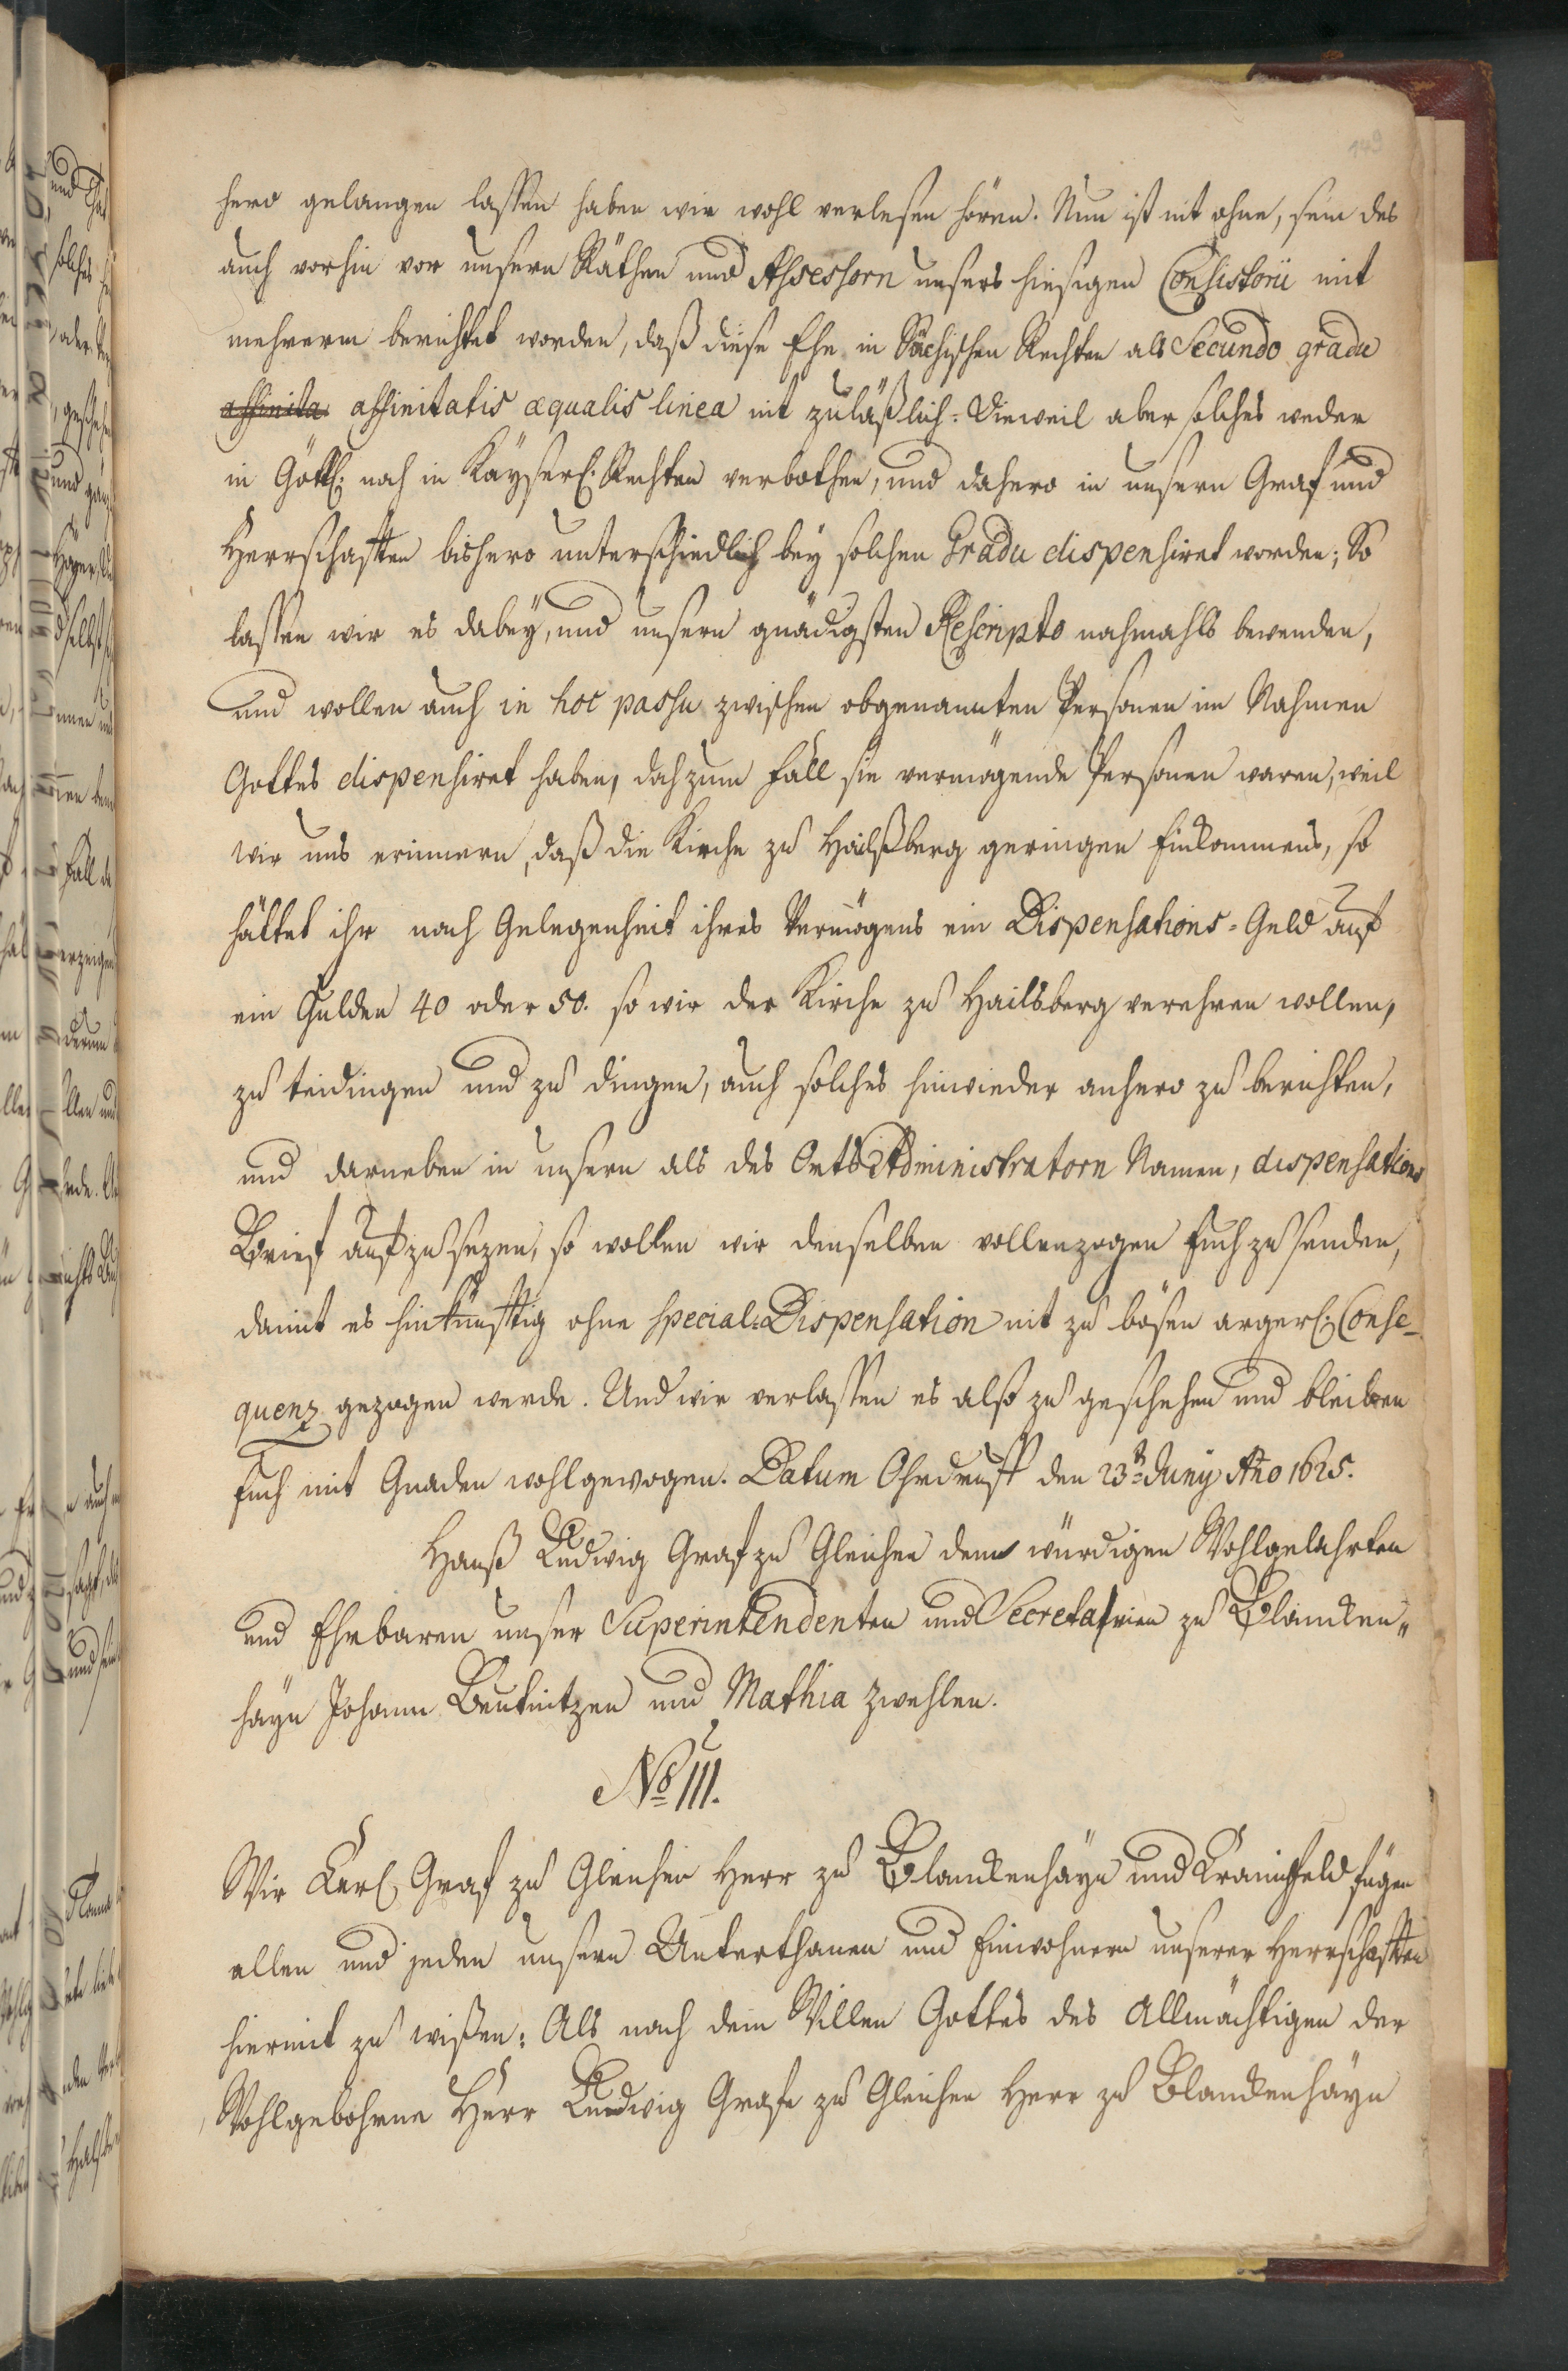 149
hero gelangen laßen haben wir wohl verlesen hören. Nun ist nit ohne, sein des
auch vorhin vor unsern Räthen und Assessorn unsers hiesigen Consistorii mit
mehrerm berichtet worden, daß diese Ehe in Sächischen Rechten als Secundo gradu
affinita affinitatis æqualis linea nit zuläßlich. Dieweil aber solches weder
in Göttl. noch in Käyserl. Rechten verbothen, und dahero in unsern Graf und
Herrschafften bishero unterschiedlich bey solchen Gradu dispensiret worden; So
laßen wir es dabey, und unsern gnädigsten Rescripto nachmahls bewenden,
und wollen auch in hoc passu zwischen obgenannten Personen im Nahmen
Gottes dispensiret haben, doch zum Fall sie vermögende Personen waren, weil
wir uns erinnern, daß die Kirche zu Hailßberg geringen Einkommens, so
hättet ihr nach Gelegenheit ihres Vermögens ein Dispensations-Geld auf
ein Gulden 40 oder 50. so wir der Kirche zu Hailsberg verehren wollen,
zu teidingen und zu dingen, auch solches hinwieder anhero zu berichten,
und darneben in unsern als des Orts Administratorn Namen, dispensations
Brief aufzusezen, so wollen wir denselben vollenzogen Euch zu senden,
damit es hinkünfftig ohne special-Dispensation nit zu bösen argerl. Conse-
quenz gezogen werde. Und wir verlaßen es also zu geschehen und bleiben
Euch mit Gnaden wohlgewogen. Datum Ohrdruff den 23. Juny Ao 1625.
Hanß Ludwig Graf zu Gleichen dem würdigen Wohlgelahrten
und Ehrbaren unser Superintendenten und Secretarien zu Blancken-
hayn Johann Beutnitzen und Mathia Zwehlen.
No III.
Wir Carl Graf zu Gleichen Herr zu Blanckenhayn und Kranichfeld fügen
allen und jeden unsern Unterthanen und Einwohnern unserer Herrschafften
hiermit zu wißen: Als nach dem Willen Gottes des Allmächtigen der
Wohlgebohrne Herr Ludwig Grafe zu Gleichen Herr zu Blanckenhayn